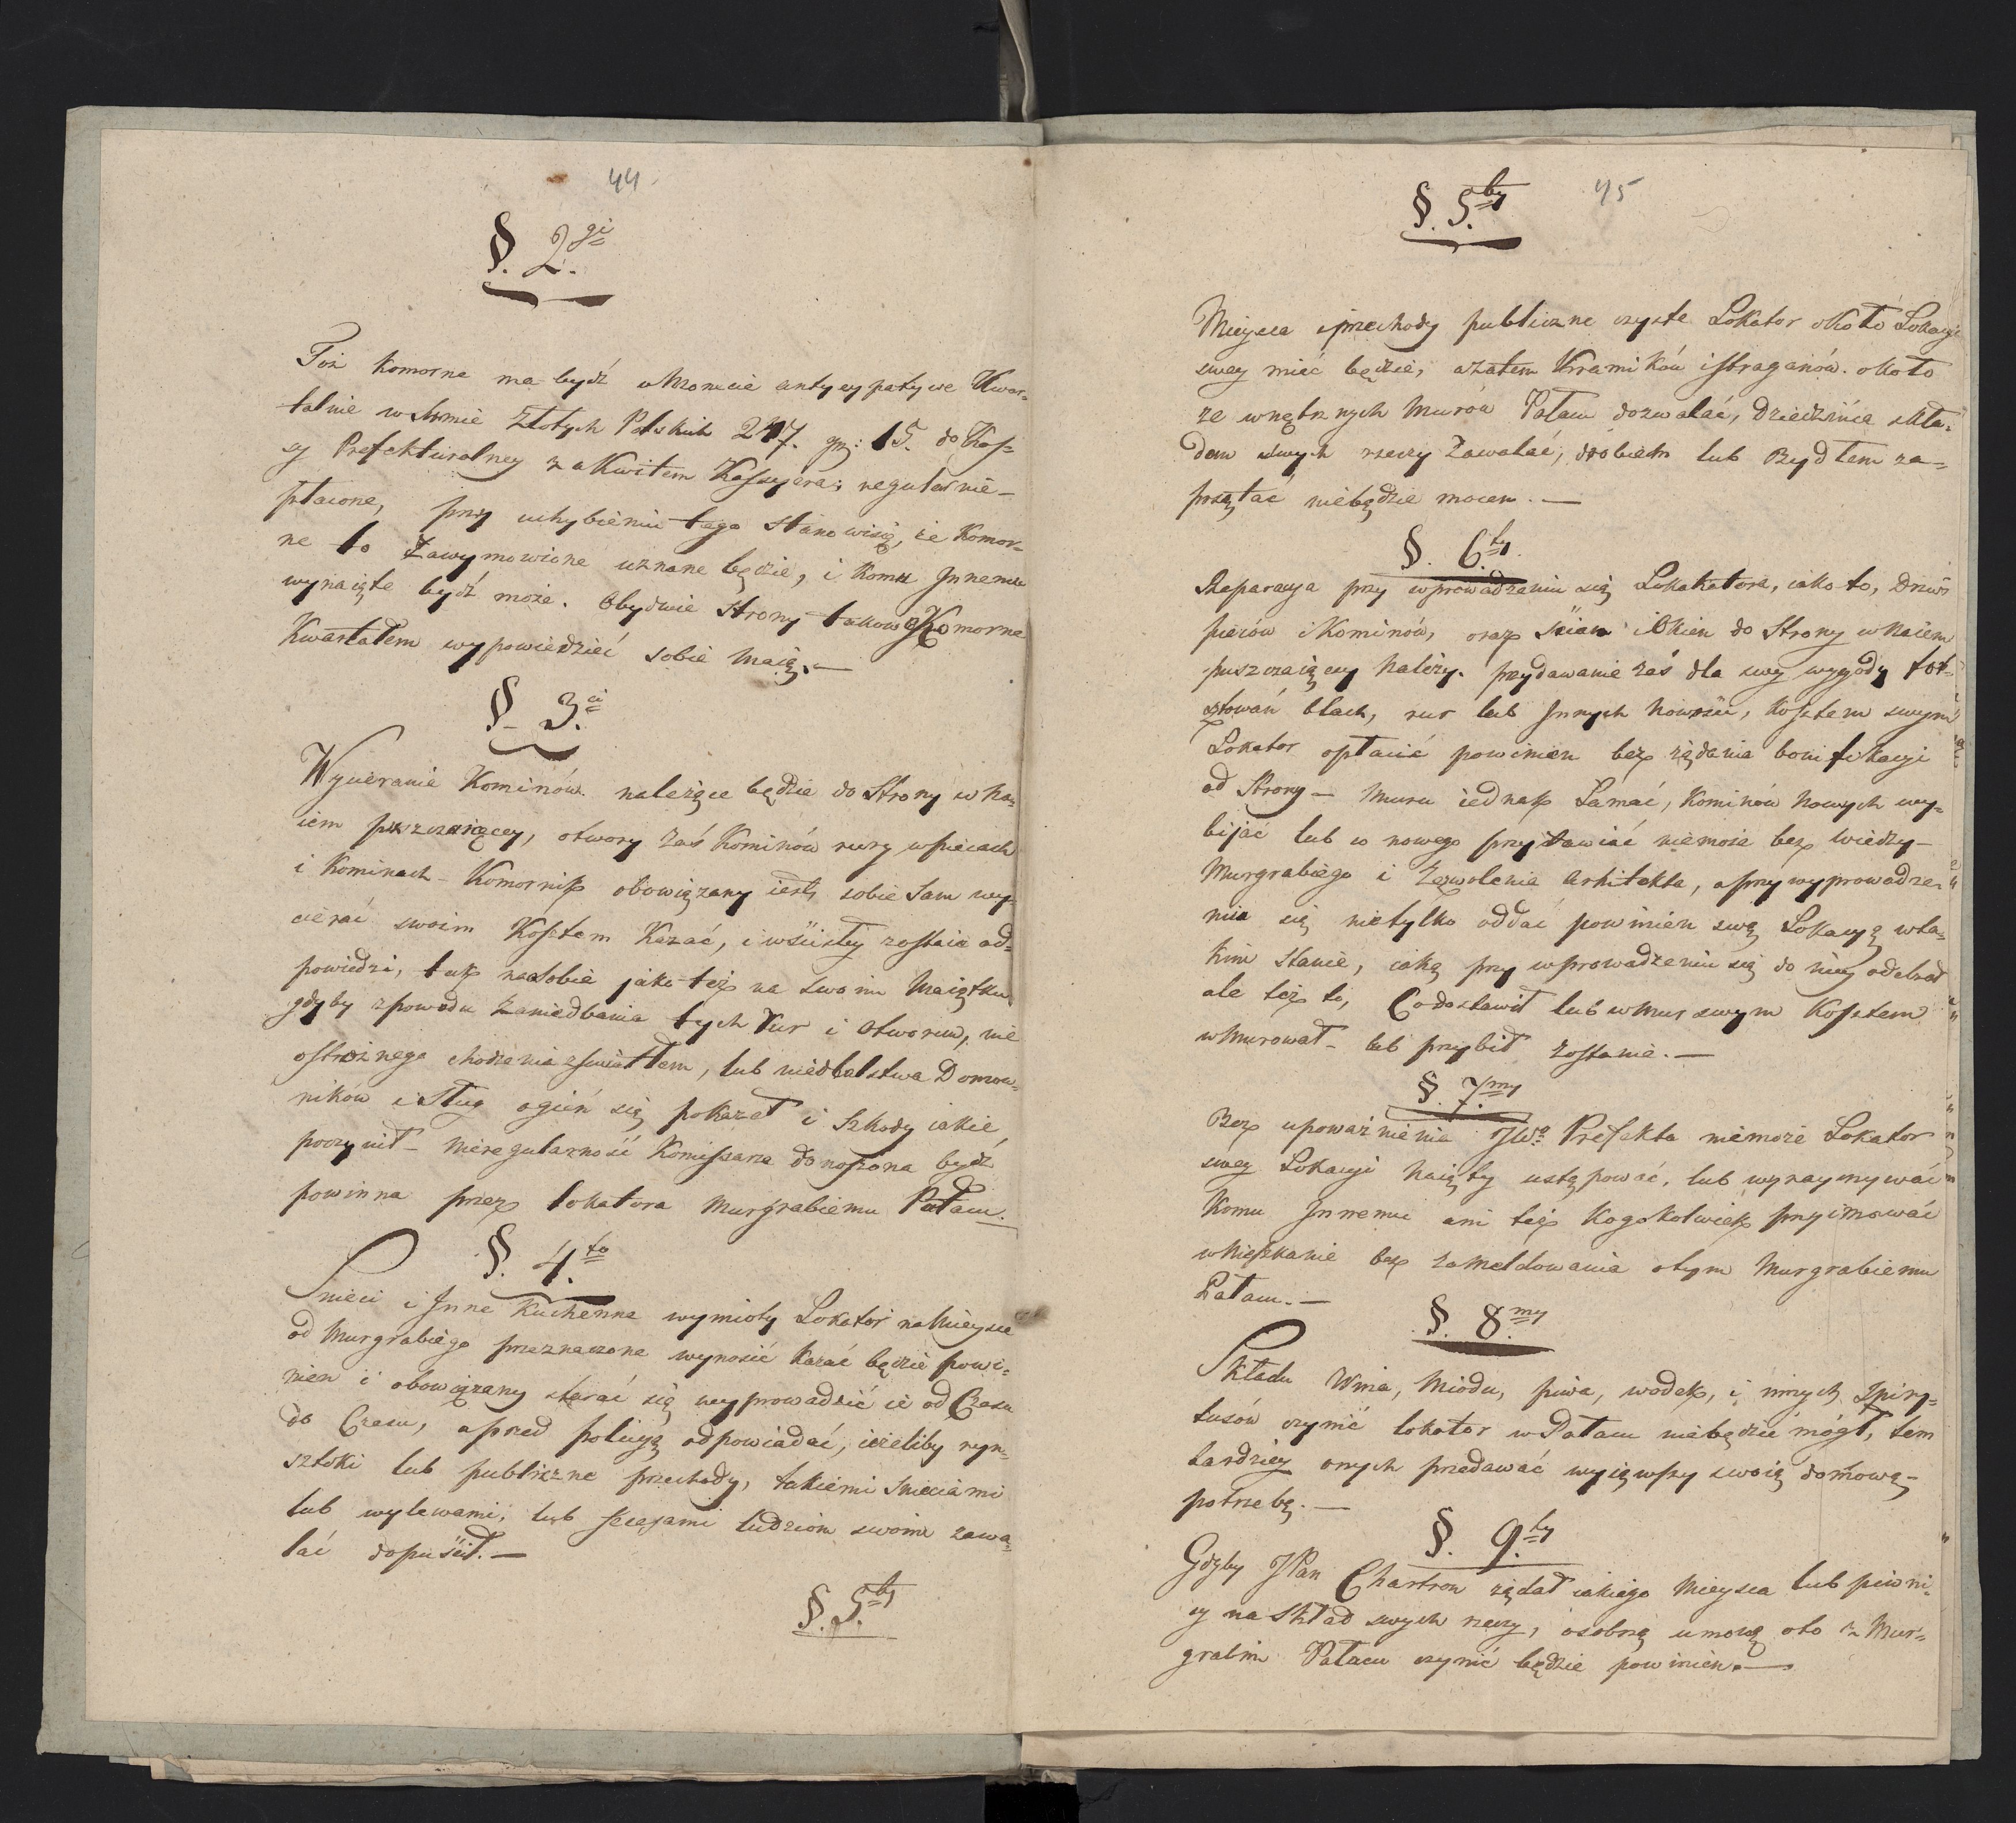 44
§. 2.gi
Toż Komorne ma bydź w Monecie antycypatywe Kwar-
talnie w Summie Złotych Polskich 247. gr: 15. do Kas-
sy Prefekturalney za Kwitem Kassyera regularnie
płacone, przy uchybieniu tego stanowisię, że Komor-
ne to Zawymowione uznane będzie, i komu Innemu
wynaięte bydź może. Obydwie Strony takowe Komorne
Kwartałem wypowiedzieć sobie maią.—
§ 3.ci
Wycieranie Kominów należące będzie do Strony w Na-
iem puszczaiącey, otwory zaś Kominów rury w piecach
i Kominach Komornik obowiązany iest, sobie Sam wy-
cierać swoim Kosztem Kazać, i w ścisłey zostaie od-
powiedzi, tak na Sobie jako też na swoim Maiątku
gdyby z powodu Zaniedbania tych Rur i Otworów, nie
ostrożnego chodzenia z światłem, lub niedbalstwa Domow-
ników i Sług ogień się pokazał i Szkody iakie
poczynił— nieregularność Kominiarza donoszona bydź
powinna przez lokatora Murgrabiemu Pałacu.
§. 4.to
Smieci i Inne Kuchenne wymioty Lokator na Mieysce
od Murgrabiego przeznaczone wynosić kazać będzie powi-
nien i obowiązany starać się wyprowadzić ie od Czasu
do Czasu, a przed policyą odpowiadać, ieżeliby ryn-
sztoki lub publiczne przechody, takiemi Smieciami
lub wylewami, lub secesami ludziom swoim zawa-
lać dopuścił.—
§. 5.ty
45
§. 5.ty
Mieysca i przechody publiczne czyste Lokator około Lokacyi
swey mieć będzie, a zatem Kramików i straganów około
ze wnętrznych Murów Pałacu dozwalać, Dziedzińca skła-
dem swych rzeczy Zawalać, drobiem lub Bydłem za-
przątać niebędzie mocen.—
§. 6.ty
Reparacya przy wprowadzeniu się Lokakatora, iako to, drzwi
pieców i Kominów, oraz Scian i Okien do Strony w Naiem
puszczaiącey Należy. przydawanie zaś dla swey wygody for-
sztowań blach, rur lub Innych Nowości, Kosztem swym
Lokator opłacić powinien bez żądania bonifikacyi
od Strony— Muru iednak Łamać, Kominów Nowych wy-
bijać lub co nowego przystawiać niemoże bez wiedzy—
Murgrabiego i Zezwolenia Arhitekta, a przy wyprowadze-
niu się nietylko oddać powinien swą Lokacyą w ta-
kim Stanie, iaką przy wprowadzeniu się do niey odebrał
ale też to, Co dostawił lub w Mur swym Kosztem
wmurował— lub przybił zostanie.—
§. 7.my
Bez upoważnienia JWo Prefekta niemoże Lokator
swey Lokacyi Naięty ustępować, lub wynaymywać
Komu Innemu ani też Kogokolwiek przyimować
w Mieszkanie bez zameldowania o tym Murgrabiemu
Pałacu.—
§. 8.my
Składu Wina, Miodu, piwa, wodek, i innych Spiry-
tusów czynić lokator w Pałacu niebędzie mógł, tem
bardziey onych przedawać wyiąwszy swoią domową—
potrzebę.—
§. 9.ty
Gdyby JPan Chartron żądał iakiego Mieysca lub piwni-
cy na Skład swych rzeczy, osobną umowę o to z Mur-
grabim Pałacu czynić będzie powinien.—